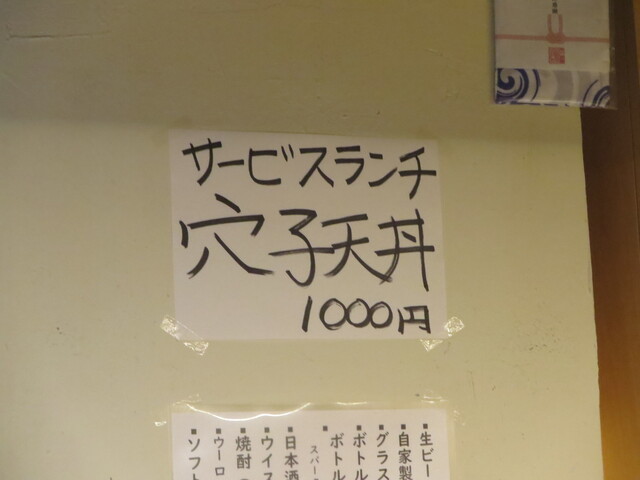 サービスランチ
穴子天丼
1000円
■生ビー
■自家製
■グラス
■ボトル
■ボトル
■日本酒
■ウイス
■焼酎
■ウーロ
■ソフト